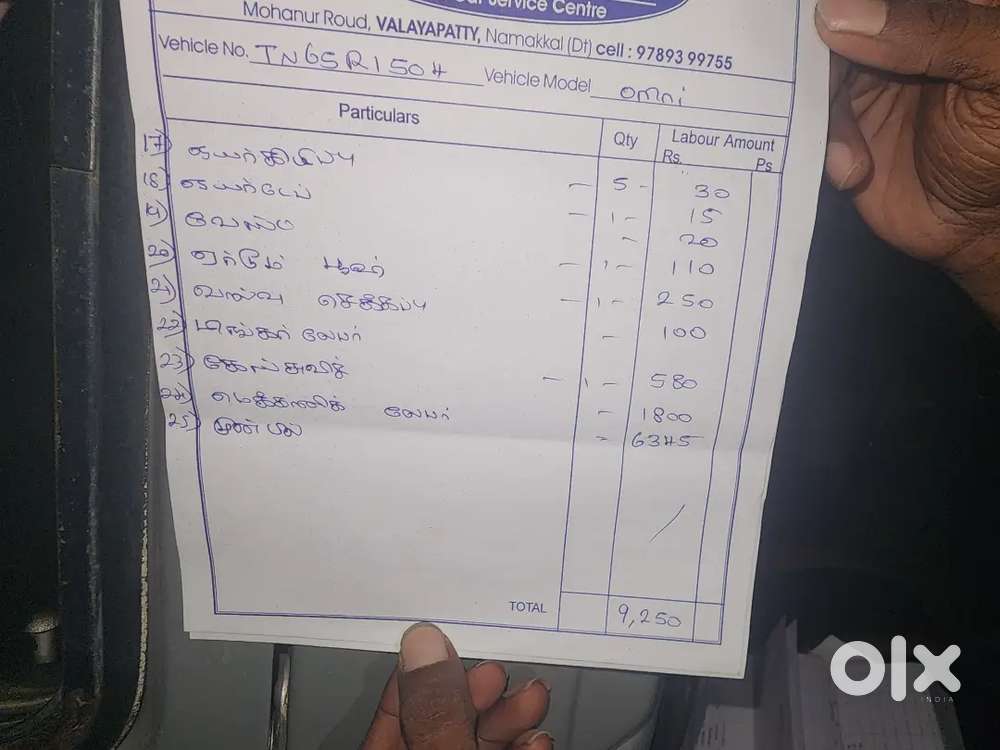 Service Centre
Mohanur Roud, VALAYAPATTY, Namakkal (Dt) cell : 97893 99755
Vehicle No. TN65R1504 Vehicle Model omni
Particulars Qty Labour Amount
Rs. Ps
17) 
18) டையர்டேப் - 5 - 30
19) வேஸ்ட - 1 - 15
- 20
20) ஏர்டும் பூவர் - 1 - 110
21) வால்வு செக்கப்பு - 1 - 250
22) லேபர் - 100
23) - 1 - 580
24) மெக்கானிக் லேபர் - 1800
25) முன் பில் = 6345
TOTAL 9,250
OLX
INDIA